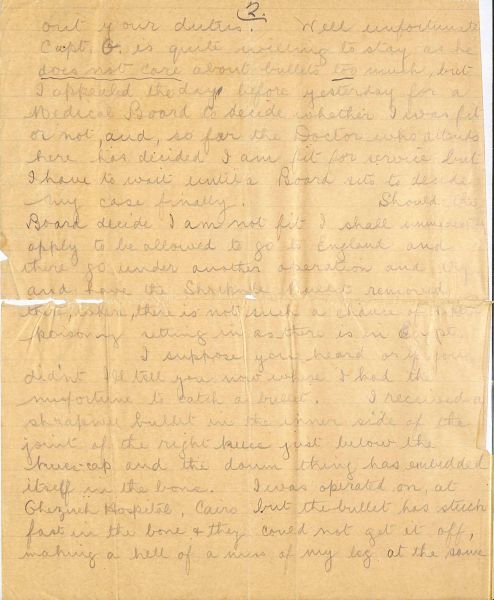 2.
out your duties. Well unfortunate
Capt. G. is quite willing to stay as he
does not care about bullets too much, but
I appealed the day before yesterday for a
Medical Board to decide whether I was fit
or not, and, so far the Doctor who attends
here has decided I am fit for service but
I have to wait until a Board sits to decide
my case finally. Should the
Board decide I am not fit I shall immediately
apply to be allowed to go to England and
there go under another operation and try
and have the Shrapnel bullet removed,
there, there is not such a chance of
poisoning setting in as there is in Egypt.
I suppose you heard or if you
didn't I'll tell you now where I had the
misfortune to catch a bullet. I received a
shrapnel bullet in the inner side of the
joint of the right knee just below the
knee-cap and the damn thing has embedded
itself in the bone. I was operated on, at
Ghezireh Hospital, Cairo but the bullet has stuck
fast in the bone & they could not get it off,
making a hell of a mess of my leg at the same